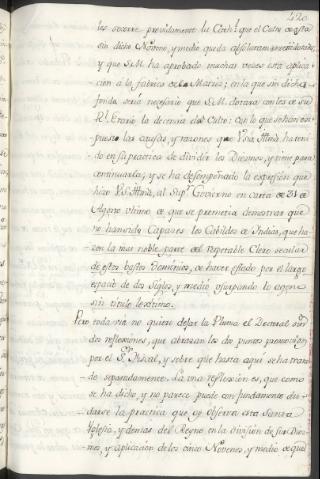 420
les socorre previdamente la Cedul.ª que el Catre de esta
sin dicho Noveno, y medio queda absolutam.te
y que S.M. ha aprobado muchas veces esta aplica-
cion á la fabrica de la Matriz; en la que sin dicho
fondo será necesario que S.M. dotara
R.l Erario la decencia del Culto: Con lo que se han ex-
puesto las causas, y razones que V.Sa Illmâ. ha teni-
do en su practica de dividir los Diezmos, y tiene para
continuarla; y se ha desempeñado la expresion que
hizo V.S. Illmâ. al Sup.or Govierno en carta de 31 de
Agosto ultimo de que se prometia demostrar que
no han sido Capaces los Cabildos de Indias, que ha-
cen la mas noble parte del respetable Clero secular
de estos bastos Dominios, de haver estado por el largo
espacio de dos Siglos, y medio usurpando lo ageno
sin titulo legitimo.
Pero toda via no quiere dejar la Pluma el Doctoral sin
dos reflexiones, que abrasan los dos puntos promovidos
por el S.or Fiscal, y sobre que hasta aqui se ha trata-
do separadamente. La una reflexion es, que como
se ha dicho, y no parece puede con fundamento du-
darse la practica que se observa esta Santa
Yglesia, y demas del Reyno en la division de sus Diez-
mos, y aplicacion de los cinco Novenos, y medio de qual